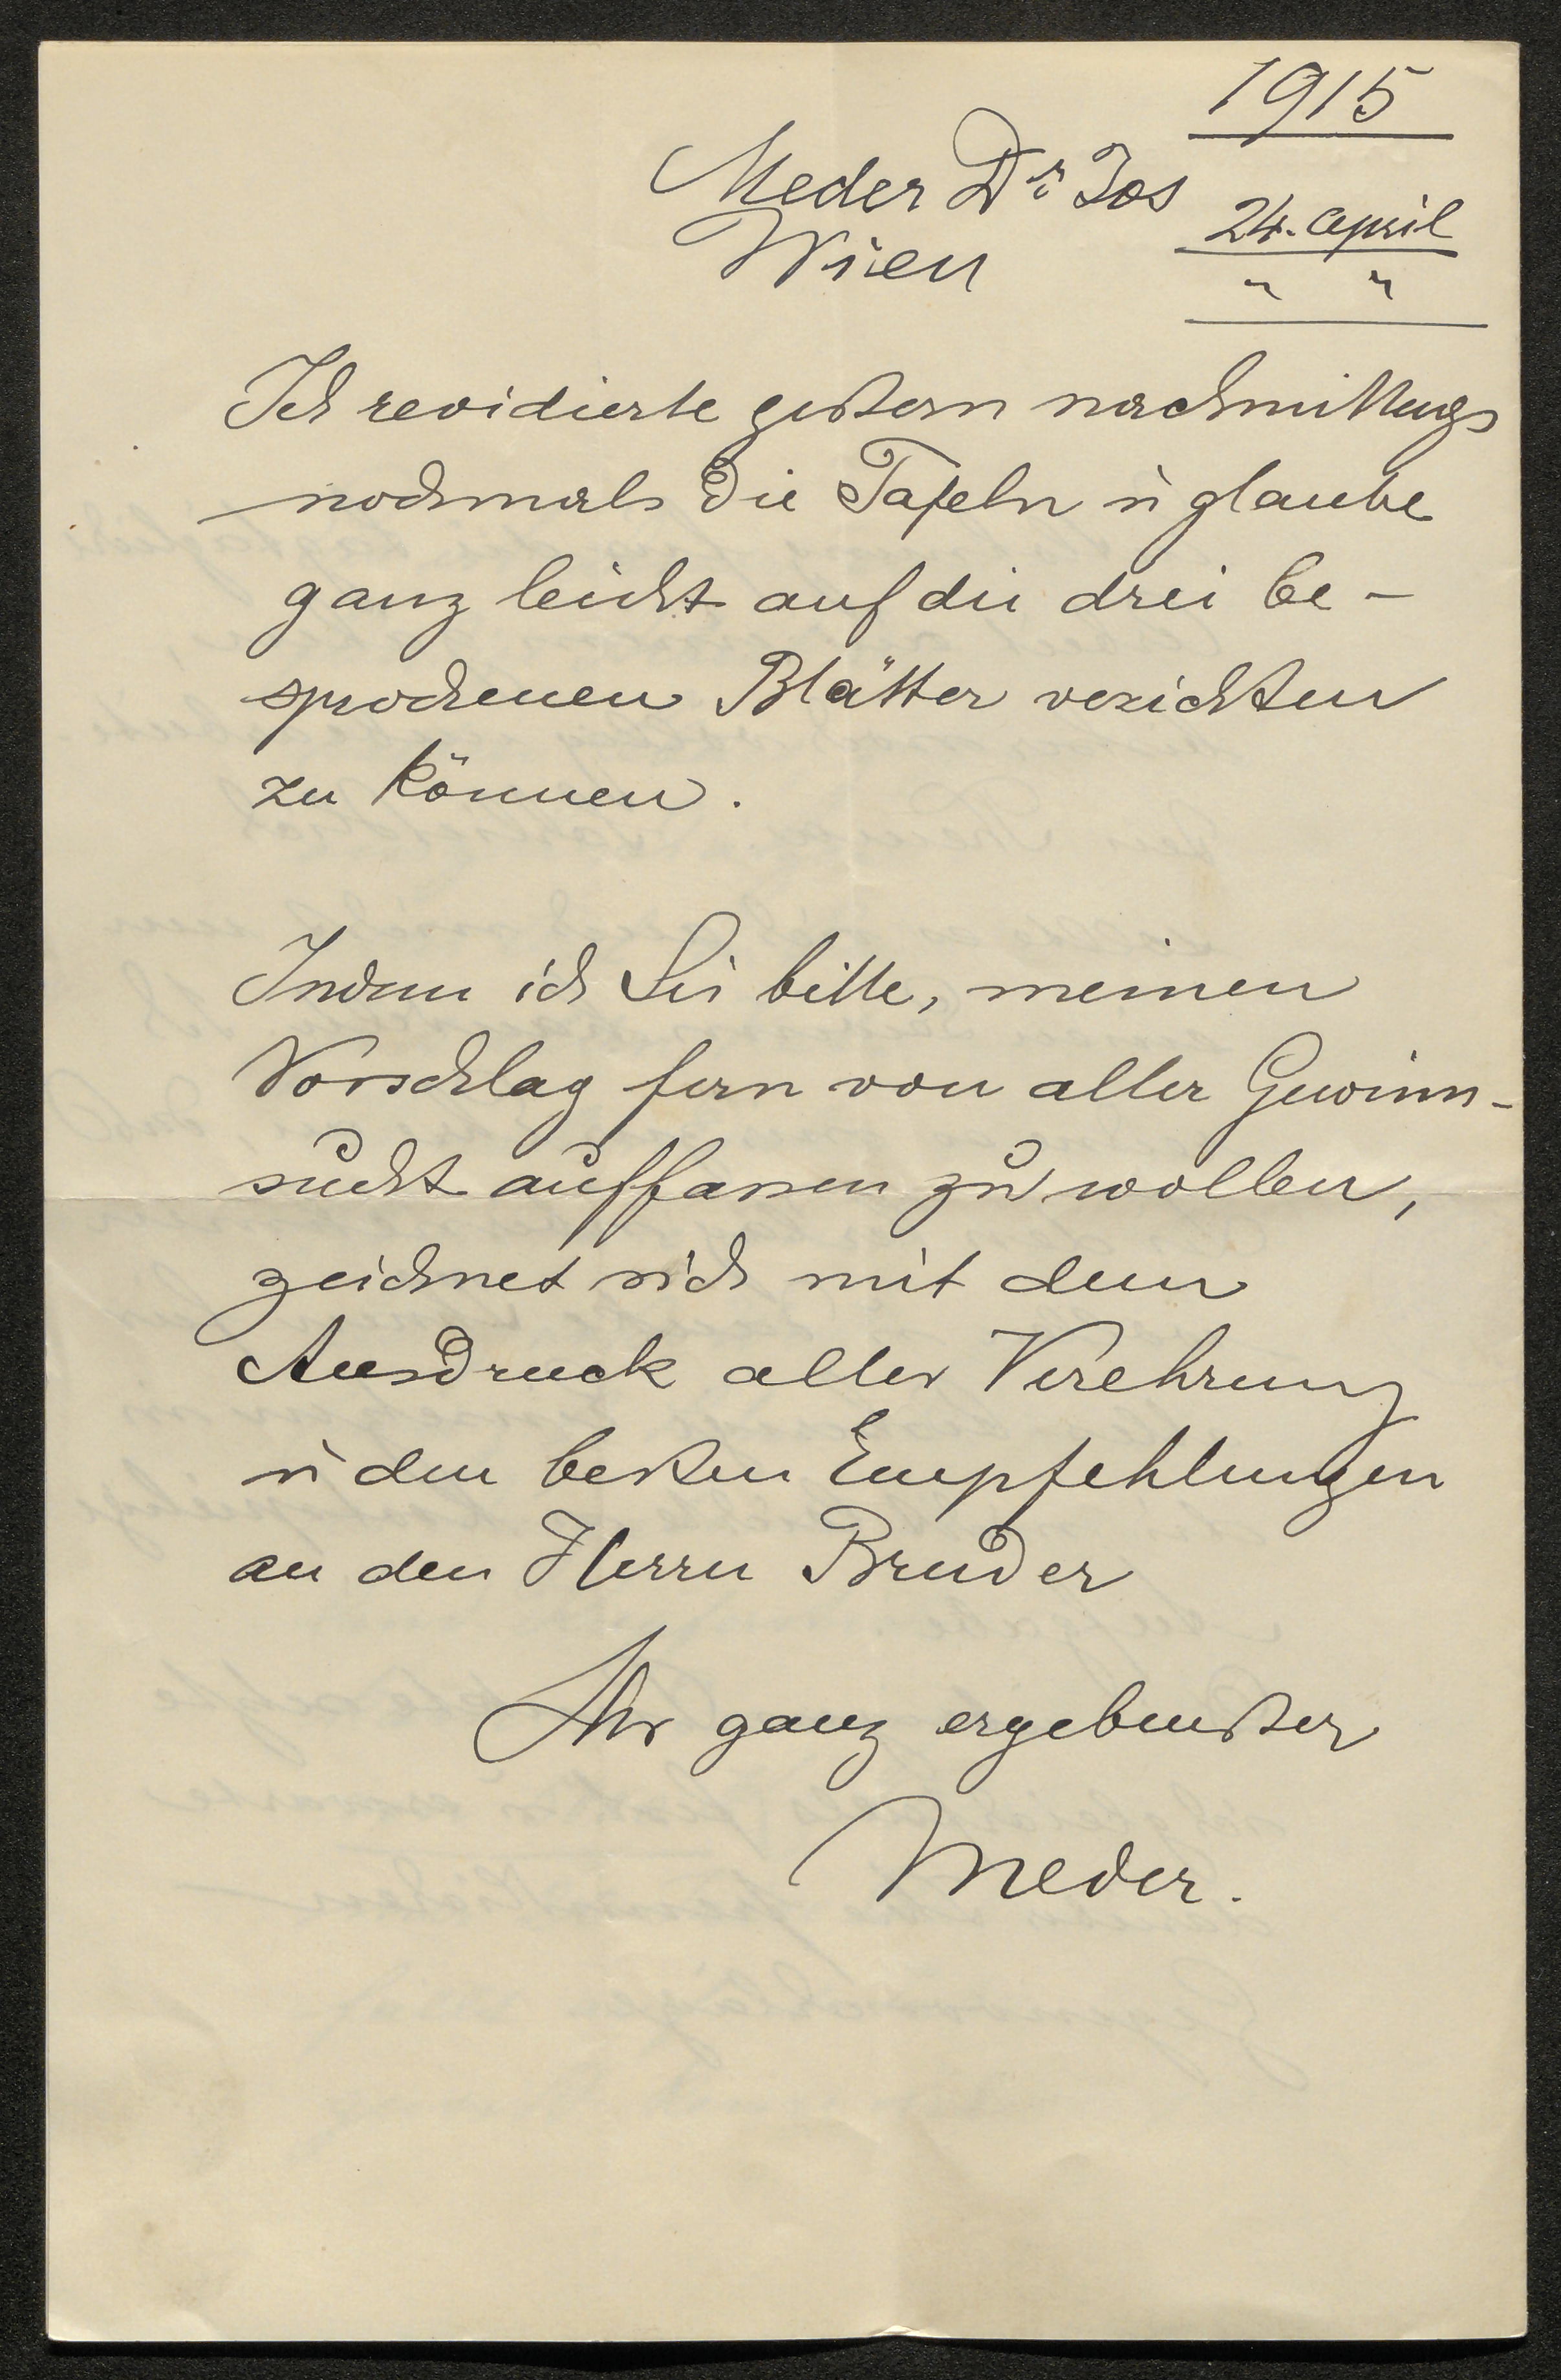 1915
Meder Dr. Jos
24. April
Wien
" "
Ich revidierte gestern nachmittags
nochmals die Tafeln u glaube
ganz leicht auf die drei be-
sprochenen Blätter verzichten
zu können.
Indem ich Sie bitte, meinen
Vorschlag fern von aller Gewinn-
sucht auffassen zu wollen,
zeichnet sich mit dem
Ausdruck aller Verehrung
u den besten Empfehlungen
an den Herrn Bruder
Ihr ganz ergebenster
Meder.